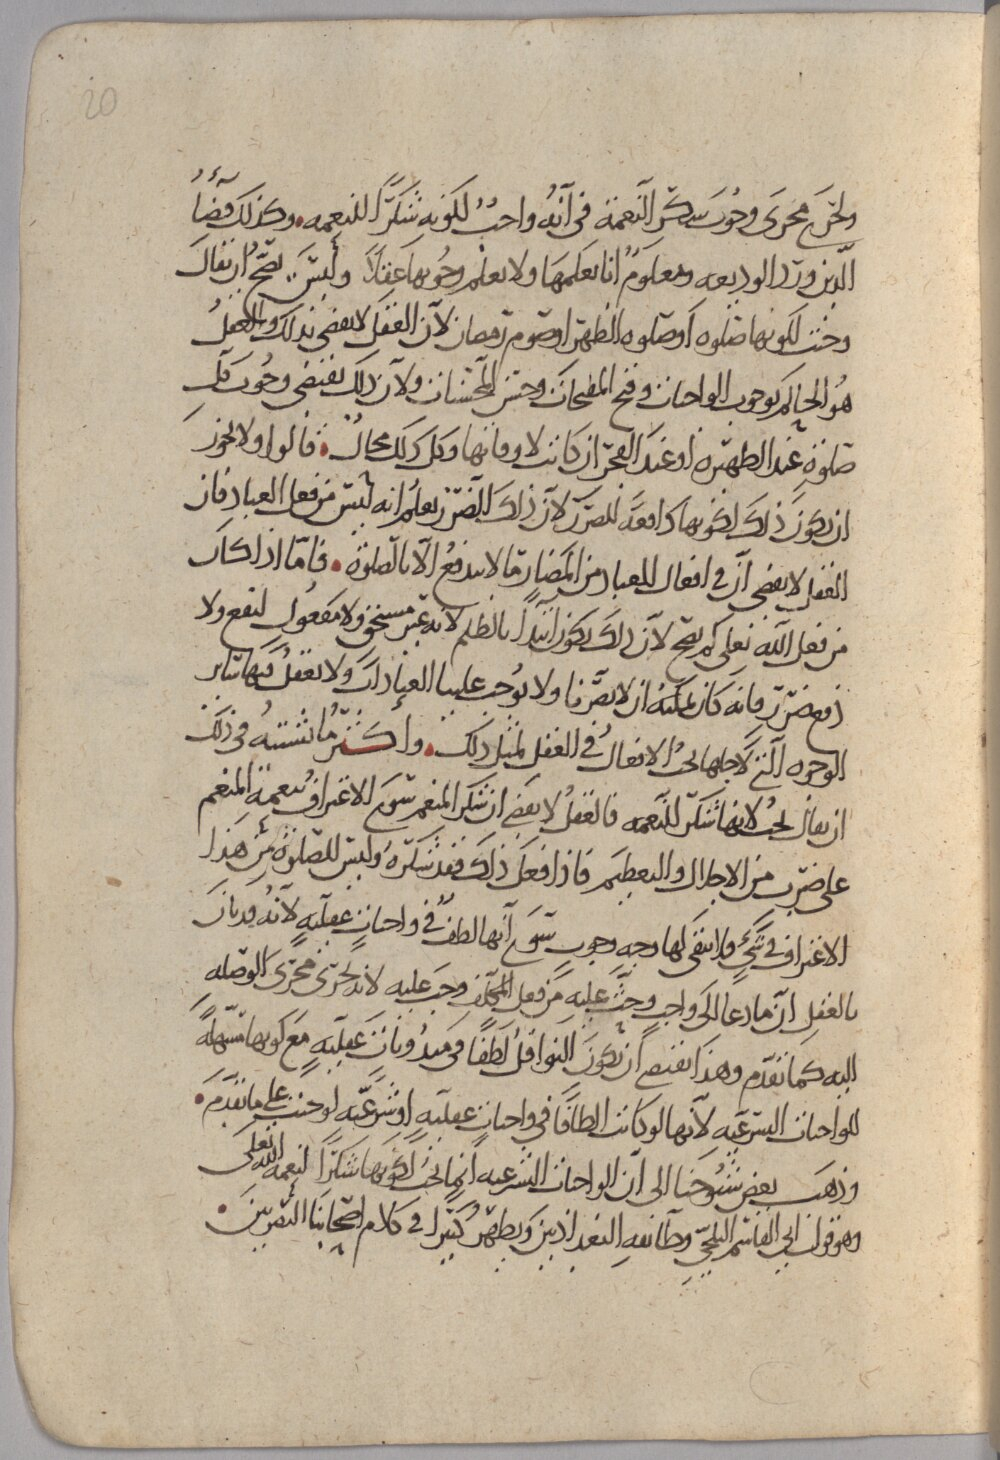 20
ولجرى مجرى وجوب شكر النعمة في أنه واجب لكونه شكرًا للنعمه وكذلك قضاء
الدين ورد الوديعه ومعلوم انا نعلمها ولا نعلم وجوبها عقلًا وليس يصح ان يقال
وجبت لكونها صلوه أو صلوه الظهر او صوم رمضان لأن العقل لا يقضي بذلك والعقل
هو الحاكم بوجوب الواجبات وقبح المقبحات وحسن المحسنات ولأن ذلك يقتضي وجوب كل
صلوة عند الظهيره أو عند الفجر ان كانت لاوقاتها وكل ذلك محال قالوا ولا يجوز
ان يكون ذلك لكونها دافعه للضرر لأن ذلك الضرر يعلم انه ليس من فعل العباد فان
العقل لا يقضي أن في افعال العباد من المضار ما لا يندفع الّا بالصلوة فامّا اذا كان
من فعل الله تعلى لم يصح لأن ذلك يكون ابتدأ بالظلم لانه غير مستحق ولا مفعول لنفع ولا
دفع ضرر فانه كان يمكنه ان لا يضرنا ولا يوجب علينا العبادات ولا يعقل فيها سائر
الوجوه التي لاجلها تجب الافعال في العقل بمثل ذلك واكثر ما نشتبه في ذلك
ان يقال تجب لانها شكر للنعمه فالعقل لا يقضي ان شكر المنعم سوى الاعتراف بنعمة المنعم
على ضرب من الاجلال والتعظيم فاذا فعل ذلك فقد شكره وليس للصلوة من هذا
الاعتراف في شيء فانتفى لها وجه وجوب سوى أنها لطف في واجبات عقلية لأنه قد بان
بالعقل ان ما دعا الى واجب وجب عليه من فعل المكلف وجب عليه لانه يجرى مجرى الوصله
اليه كما تقدم وهذا يقتضي أن يكون النوافل لطفًا في مندوبات عقلية مع كونها مسهلة
للواجبات الشرعية لأنها لو كانت الطافًا في واجبات عقلية او شرعيه لوجبت على ما تقدم
وذهب بعض شيوخنا الى أن الواجبات الشرعيه انما تجب لكونها شكرًا لنعمه الله تعلى
وهو قول ابي القاسم البلخي وطائفه البغداذيين ويظهر كثيرا في كلام اصحابنا البصريين